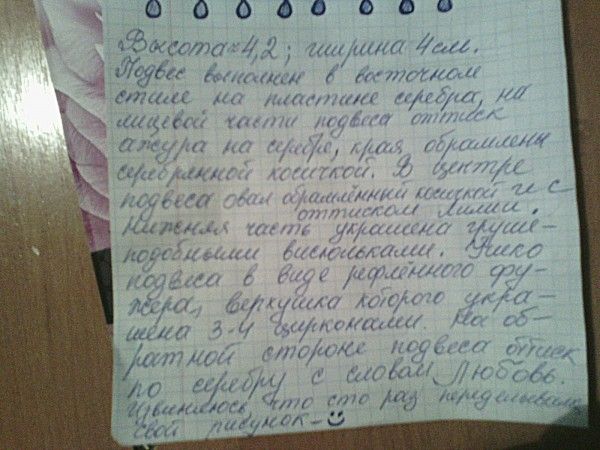 Высота≈4,2; ширина 4см.
Подвес выполнен в восточном
стиле на пластине серебра, на
лицевой части подвеса оттиск
ажура на серебре, края обрамлены
серебрянной косичкой. В центре
подвеса овал обрамлённый косичкой и с
оттиском лилии.
Нижняя часть украшена груше-
подобными висюльками. Ушко
подвеса в виде рефлённого фу-
жера, верхушка которого укра-
шена 3-4 цирконами. На об-
ратной стороне подвеса оттиск
по серебру с словом Любовь.
Извиняюсь, что сто раз переделывала
свой рисунок-